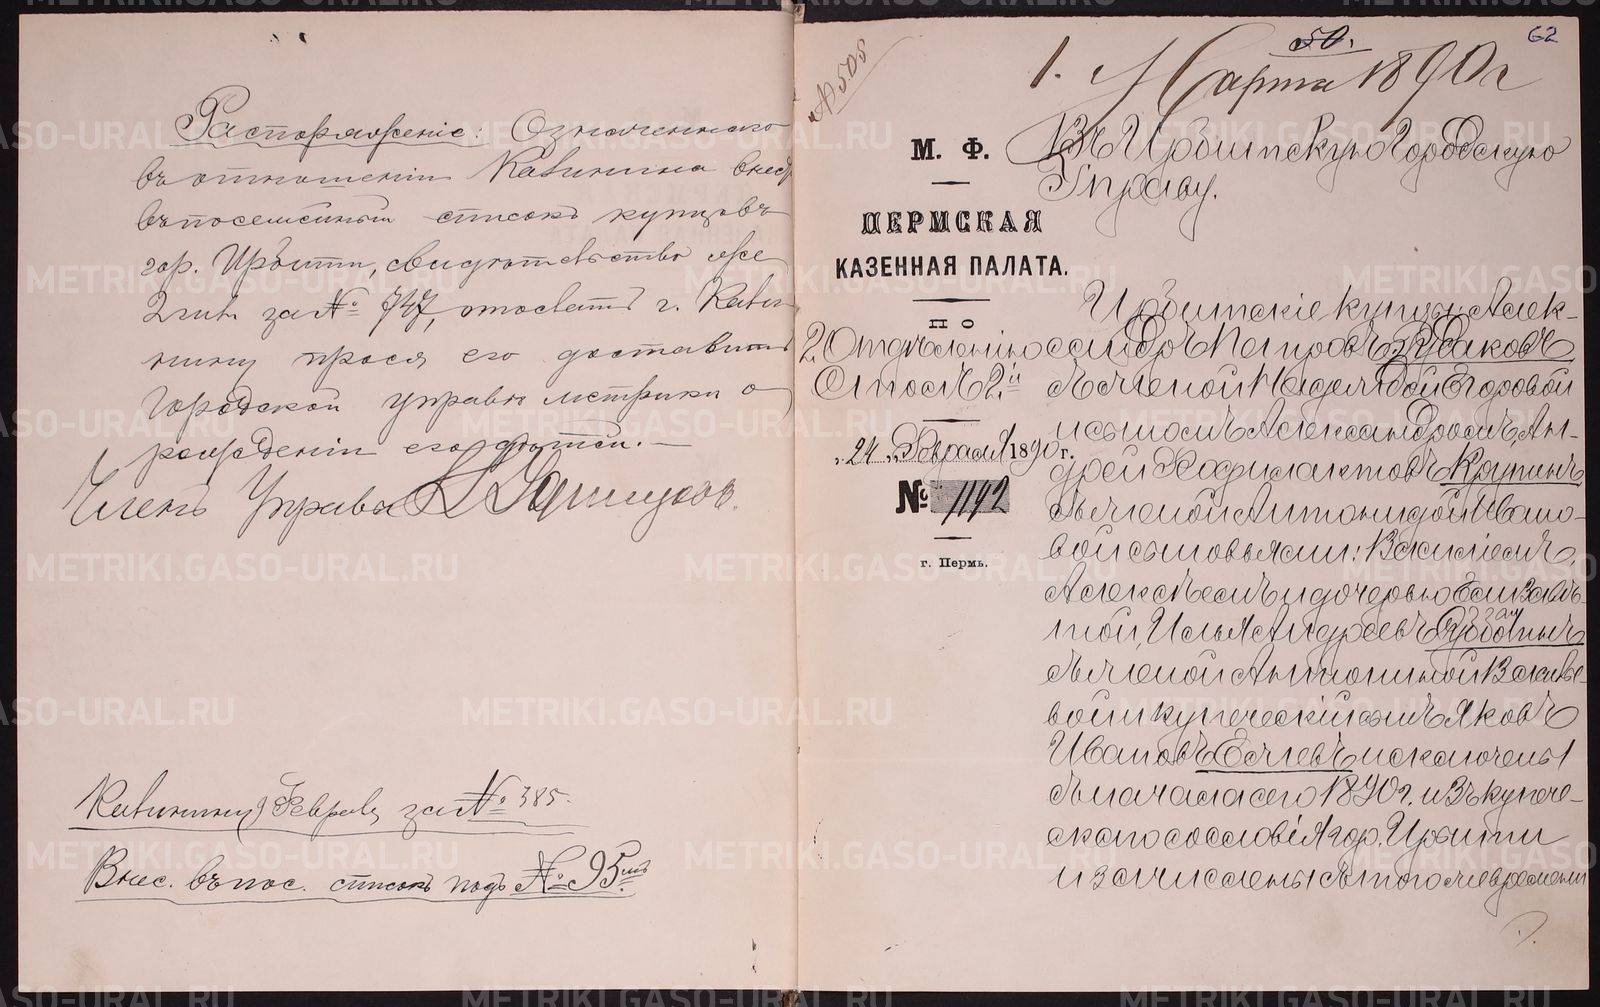 Распоряженіе: Означеннаго
въ отношеніи Кавинина внес
въ посемейный списокъ купцовъ
гор. Ирбити, свидѣтельство же
2 гил. за № 747, отослать г. Кави-
нину прося его доставить
Городской управѣ метрики о
рожденіи его дѣтей.
Членъ Управы
Кавинину 9 Февраля за № 385.
Внес. въ пос. списокъ подъ № 95
№ 505
50.
62
1. Марта 1890 г
М. Ф.
ПЕРМСКАЯ
КАЗЕННАЯ ПАЛАТА.
ПО
2 Отдѣленію
Столъ 2й
„24„ Февраля 1890 г.
№ 1192
г. Пермь.
Въ Ирбитскую Городскую
Управу.
Ирбитскіе купцы: Алек-
сандръ Петровъ Русаковъ
съ женой Надеждой Егоровой
и сыномъ Александромъ, Ан-
дрей Феофилактовъ Крутинъ
съ женой Антонидой Ивано-
вой сыновьями: Василіемъ,
Алексѣемъ и дочерью Елизавѣ-
той, Илья Андреевъ
съ женой Антониной Василье-
вой и купеческій сынъ Яковъ
Ивановъ Ечевъ исключены
съ начала сего 1890 г. изъ купече-
скаго сословія гор. Ирбити
и зачислены съ того же времени
METRIKI.GASO-URAL.RU